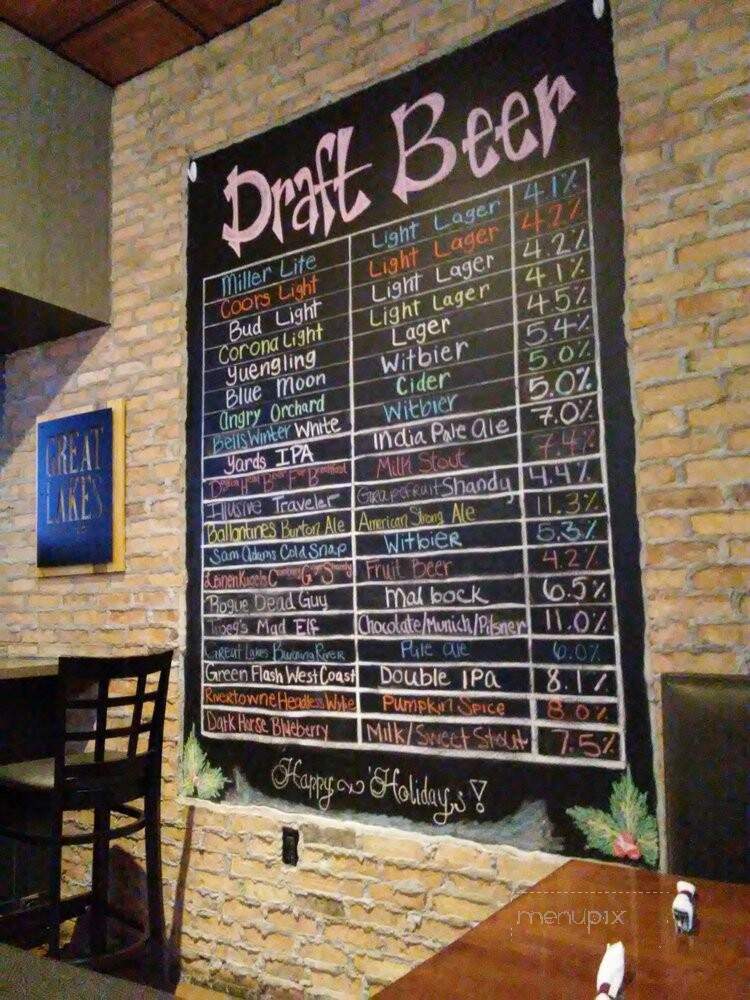 Draft Beer
Miller Lite Light Lager 4.1%
Coors Light Light Lager 4.2%
Bud Light Light Lager 4.2%
Corona Light Light Lager 4.1%
Yuengling Lager 4.5%
Blue Moon Witbier 5.4%
Angry Orchard Cider 5.0%
Bells Winter White Witbier 5.0%
Yards IPA India Pale Ale 7.0%
Beer For Breakfast Milk Stout 7.4%
Illusive Traveler Grapefruit Shandy 4.4%
Ballantines Burton Ale American Strong Ale 11.3%
Sam Adams Cold Snap Witbier 5.3%
Leinenkugels Shandy Fruit Beer 4.2%
Rogue Dead Guy Maibock 6.5%
Mad Elf Chocolate/Munich/Pilsner 11.0%
Great Lakes Burning River Pale Ale 6.0%
Green Flash West Coast Double IPA 8.1%
Rivertowne Headless Wylie Pumpkin Spice 8.0%
Dark Horse Blueberry Milk/Sweet Stout 7.5%
Happy Holidays!
GREAT
LAKES
menupix